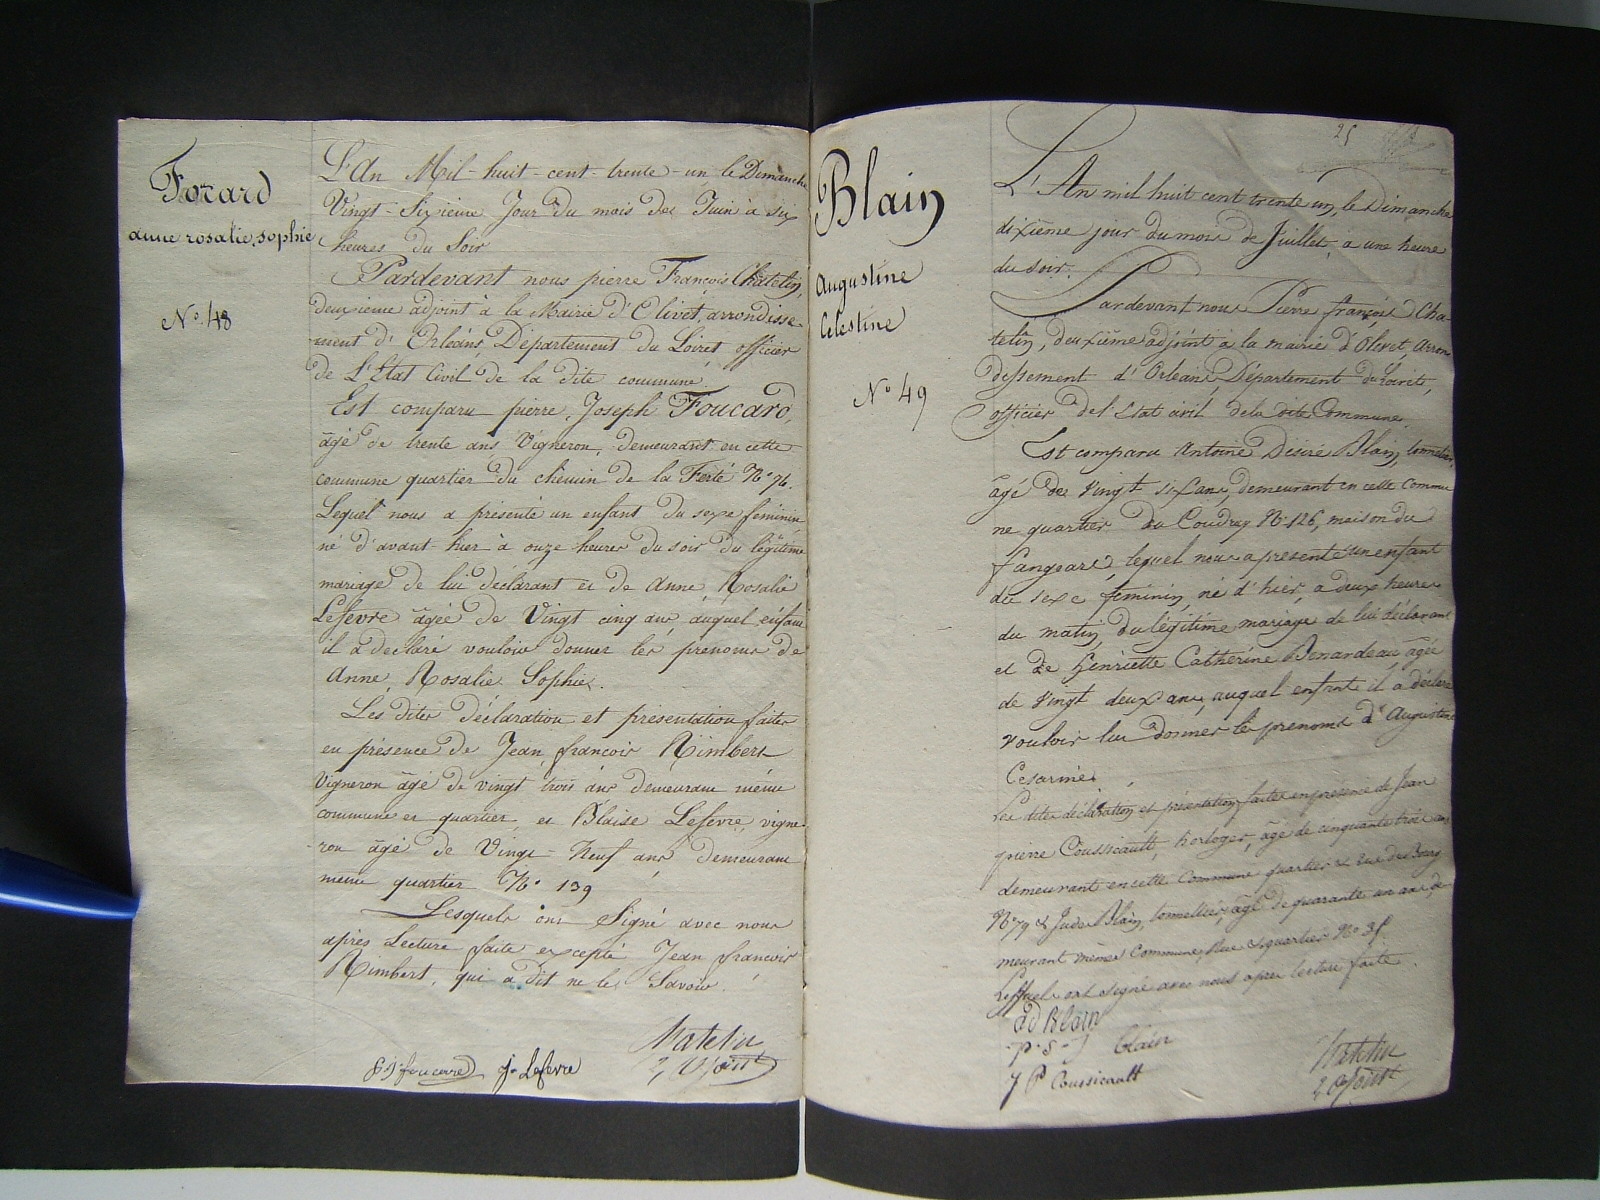 Focard
anne rosalie sophie
No. 48
L'An Mil-huit-cent-trente-un le Dimanche
Vingt-Sixieme Jour du mois de Juin à six
heures du Soir
Pardevant nous pierre François Chatelin,
deuxieme adjoint à la Mairie d'Olivet, arrondisse-
ment d'Orléans, Département du Loiret, officier
de L'Etat Civil de la dite commune.
Est comparu pierre Joseph Foucard,
âgé de trente ans, Vigneron, demeurant en cette
commune quartier du chemin de la Ferté No 76.
Lequel nous a présenté un enfant du sexe feminin
né d'avant hier à onze heures du soir du légitime
mariage de lui déclarant et de Anne, Rosalie
Lefevre âgée de Vingt cinq ans, auquel enfant
il a déclaré vouloir donner les prénoms de
Anne, Rosalie Sophie.
Les dites déclaration et présentation faites
en présence de Jean françois Rimbert
Vigneron âgé de vingt trois ans demeurant même
commune et quartier, et Blaise Lefevre, vigne-
ron âgé de Vingt-Neuf ans, demeurant
même quartier No. 139
Lesquels ont Signé avec nous
après Lecture faite excepté Jean françois
Rimbert, qui a dit ne le Savoir.
foucard j. Lefevre
Chatelin
2 Adjoint
25
Blain
Augustine
Celestine
No 49
L'An mil huit cent trente un, le Dimanche
dixième jour du mois de Juillet, a une heure
du soir.
Pardevant nous Pierre françois Cha-
telin, deuxième adjoint a la mairie d'Olivet, Arron
dissement d'Orleans Département du Loiret,
officier de l'Etat civil de la dite Commune.
Est comparu Antoine Désiré Blain, tonnelier,
âgé de vingt six ans, demeurant en cette Commu
ne quartier du Coudray No 126, maison du
lequel nous a presenté un enfant
du sexe féminin, né d'hier, a deux heures
du matin, du légitime mariage de lui déclarant
et de Henriette Catherine Benardeau âgée
de vingt deux ans, auquel enfant il a déclaré
vouloir lui donner les prenoms d'Augustine
Cesarine.
Les dites déclaration et présentation faites en presence de Jean
pierre Coussicault, horloger, âgé de cinquante trois ans
demeurant en cette Commune quartier et Rue du Bourg
No 79 & Jude Blain, tonnellier, âgé de quarante un ans, de
meurant même Commune, Rue & quartier No 35.
Lesquels ont signé avec nous apres lecture faite.
ad Blain
p. s. J blain
J P Coussicault
Chatelin
2 adjoint